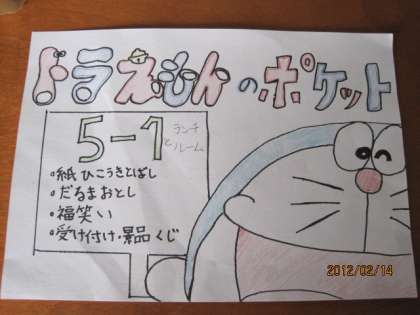 ドラえもんのポケット
5-1 と ランチルーム
・紙ひこうきとばし
・だるまおとし
・福笑い
・受け付け・景品くじ
2012/02/14